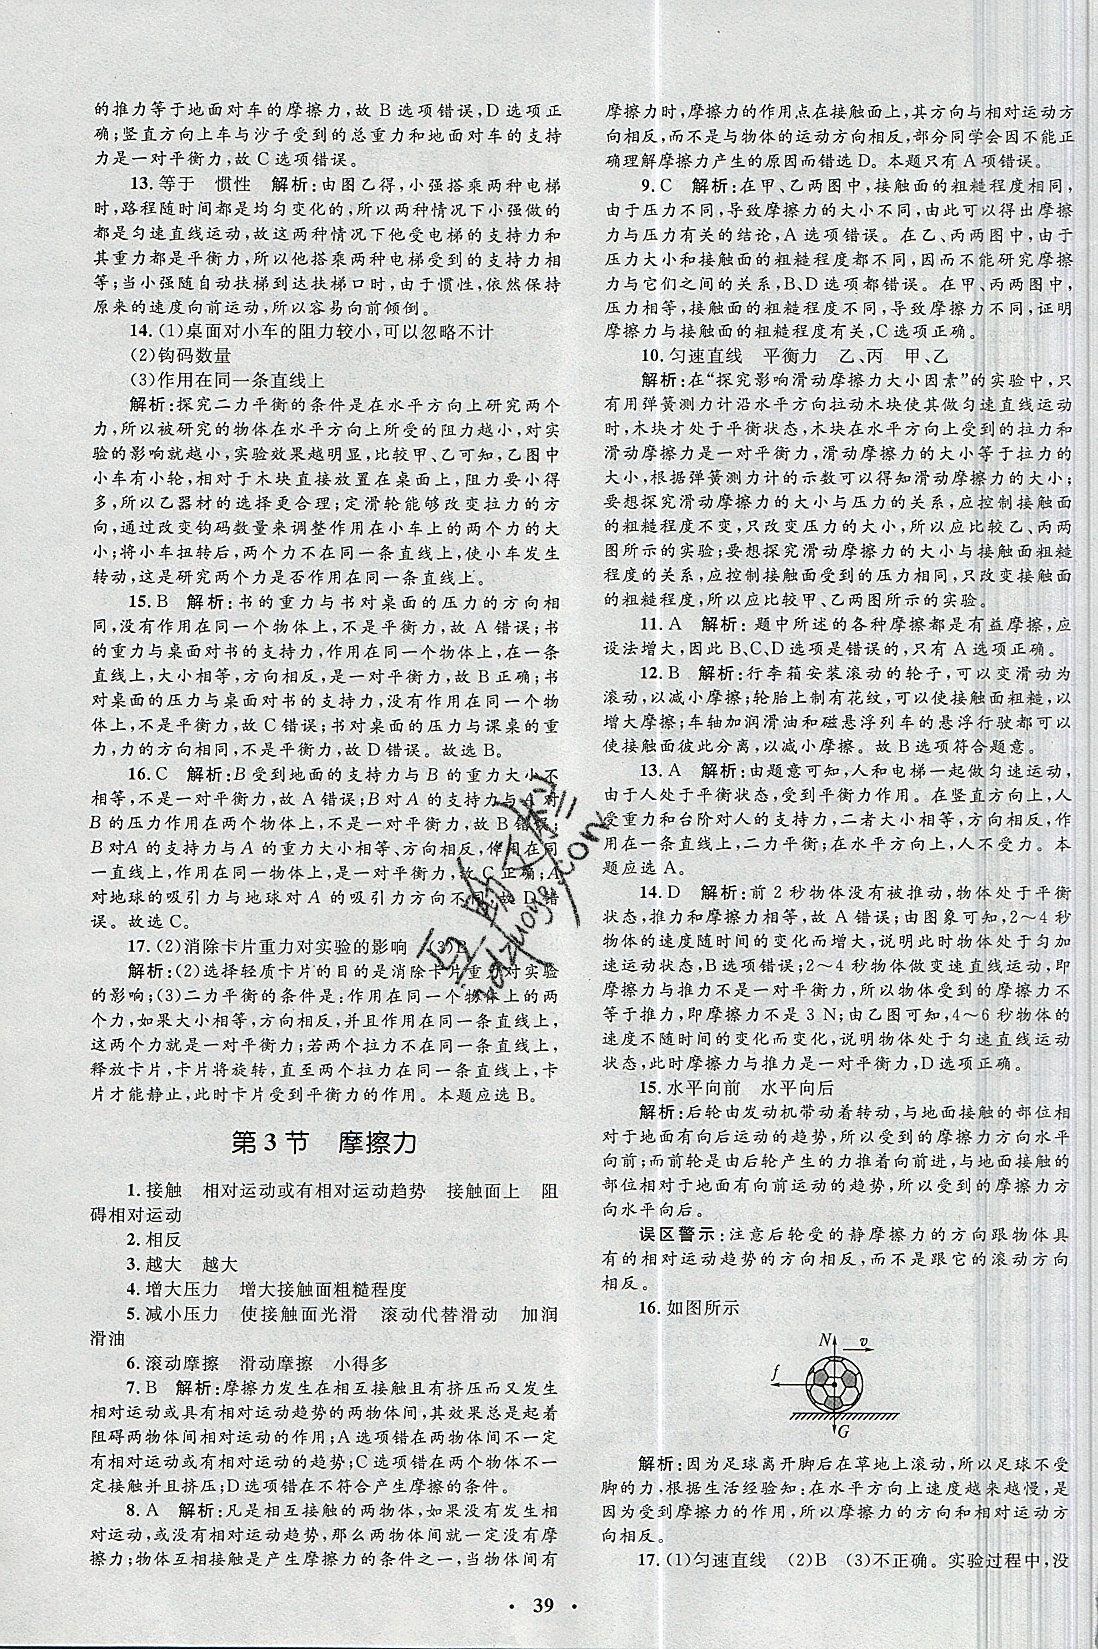 的推力等于地面对车的摩擦力,故B选项错误,D选项正
确;竖直方向上车与沙子受到的总重力和地面对车的支持
力是一对平衡力,故C选项错误。
13.等于　惯性　解析:由图乙得,小强搭乘两种电梯
时,路程随时间都是均匀变化的,所以两种情况下小强做的
都是匀速直线运动,故这两种情况下他受电梯的支持力和
其重力都是平衡力,所以他搭乘两种电梯受到的支持力相
等;当小强随自动扶梯到达扶梯口时,由于惯性,依然保持
原来的速度向前运动,所以容易向前倾倒。
14.(1)桌面对小车的阻力较小,可以忽略不计
(2)钩码数量
(3)作用在同一条直线上
解析:探究二力平衡的条件是在水平方向上研究两个
力,所以被研究的物体在水平方向上所受的阻力越小,对实
验的影响就越小,实验效果越明显,比较甲、乙可知,乙图中
小车有小轮,相对于木块直接放置在桌面上,阻力要小得
多,所以乙器材的选择更合理;定滑轮能够改变拉力的方
向,通过改变钩码数量来调整作用在小车上的两个力的大
小;将小车扭转后,两个力不在同一条直线上,使小车发生
转动,这是研究两个力是否作用在同一条直线上。
15.B　解析:书的重力与书对桌面的压力的方向相
同,没有作用在同一个物体上,不是平衡力,故A错误;书
的重力与桌面对书的支持力,作用在同一个物体上,在一条
直线上,大小相等,方向相反,是一对平衡力,故B正确;书
对桌面的压力与桌面对书的支持力,没有作用在同一个物
体上,不是平衡力,故C错误;书对桌面的压力与课桌的重
力,力的方向相同,不是平衡力,故D错误。故选B。
16.C　解析:B受到地面的支持力与B的重力大小不
相等,不是一对平衡力,故A错误;B对A的支持力与A对
B的压力作用在两个物体上,不是一对平衡力,故B错误;
B对A的支持力与A的重力大小相等、方向相反,作用在同
一直线上,作用在同一物体上,是一对平衡力,故C正确;A
对地球的吸引力与地球对A的吸引力方向不同,故D错
误。故选C。
17.(2)消除卡片重力对实验的影响　(3)B
解析:(2)选择轻质卡片的目的是消除卡片重力对实验
的影响;(3)二力平衡的条件是:作用在同一个物体上的两
个力,如果大小相等,方向相反,并且作用在同一条直线上,
这两个力就是一对平衡力;若两个拉力不在同一条直线上,
释放卡片,卡片将旋转,直至两个拉力在同一条直线上,卡
片才能静止,此时卡片受到平衡力的作用。本题应选B。
第3节　摩擦力
1.接触　相对运动或有相对运动趋势　接触面上　阻
碍相对运动
2.相反
3.越大　越大
4.增大压力　增大接触面粗糙程度
5.减小压力　使接触面光滑　滚动代替滑动　加润
滑油
6.滚动摩擦　滑动摩擦　小得多
7.B　解析:摩擦力发生在相互接触且有挤压而又发生
相对运动或具有相对运动趋势的两物体间,其效果总是起着
阻碍两物体间相对运动的作用;A选项错在两物体间不一定
有相对运动或有相对运动的趋势;C选项错在两物体不一
定接触并且挤压;D选项错在不符合产生摩擦的条件。
8.A　解析:凡是相互接触的两物体,如果没有发生相
对运动,或没有相对运动趋势,那么两物体间就一定没有摩
擦力;物体互相接触是产生摩擦力的条件之一,当物体间有
摩擦力时,摩擦力的作用点在接触面上,其方向与相对运动方
向相反,而不是与物体的运动方向相反,部分同学会因不能正
确理解摩擦力产生的原因而错选D。本题只有A项错误。
9.C　解析:在甲、乙两图中,接触面的粗糙程度相同,
由于压力不同,导致摩擦力的大小不同,由此可以得出摩擦
力与压力有关的结论,A选项错误。在乙、丙两图中,由于
压力大小和接触面的粗糙程度都不同,因而不能研究摩擦
力与它们之间的关系,B、D选项都错误。在甲、丙两图中,
压力相等,接触面的粗糙程度不同,导致摩擦力不同,证明
摩擦力与接触面的粗糙程度有关,C选项正确。
10.匀速直线　平衡力　乙、丙　甲、乙
解析:在“探究影响滑动摩擦力大小因素”的实验中,只
有用弹簧测力计沿水平方向拉动木块使其做匀速直线运动
时,木块才处于平衡状态,木块在水平方向上受到的拉力和
滑动摩擦力是一对平衡力,滑动摩擦力的大小等于拉力的
大小,根据弹簧测力计的示数可以得知滑动摩擦力的大小;
要想探究滑动摩擦力的大小与压力的关系,应控制接触面
的粗糙程度不变,只改变压力的大小,所以应比较乙、丙两
图所示的实验;要想探究滑动摩擦力的大小与接触面粗糙
程度的关系,应控制接触面受到的压力相同,只改变接触面
的粗糙程度,所以应比较甲、乙两图所示的实验。
11.A　解析:题中所述的各种摩擦都是有益摩擦,应
设法增大,因此B、C、D选项是错误的,只有A选项正确。
12.B　解析:行李箱安装滚动的轮子,可以变滑动为
滚动,以减小摩擦;轮胎上制有花纹,可以使接触面粗糙,以
增大摩擦;车轴加润滑油和磁悬浮列车的悬浮行驶都可以
使接触面彼此分离,以减小摩擦。故B选项符合题意。
13.A　解析:由题意可知,人和电梯一起做匀速运动,
由于人处于平衡状态,受到平衡力作用。在竖直方向上,人
受重力和台阶对人的支持力,二者大小相等,方向相反,作
用在一条直线上,二力平衡;在水平方向上,人不受力。本
题应选A。
14.D　解析:前2秒物体没有被推动,物体处于平衡
状态,推力和摩擦力相等,故A错误;由图象可知,2～4秒
物体的速度随时间的变化而增大,说明此时物体处于匀加
速运动状态,B选项错误;2～4秒物体做变速直线运动,即
摩擦力与推力不是一对平衡力,所以物体受到的摩擦力不
等于推力,即摩擦力不是3 N;由乙图可知,4～6秒物体的
速度不随时间的变化而变化,说明物体处于匀速直线运动
状态,此时摩擦力与推力是一对平衡力,D选项正确。
15.水平向前　水平向后
解析:后轮由发动机带动着转动,与地面接触的部位相
对于地面有向后运动的趋势,所以受到的摩擦力方向水平
向前;而前轮是由后轮产生的力推着向前进,与地面接触的
部位相对于地面有向前运动的趋势,所以受到的摩擦力方
向水平向后。
误区警示:注意后轮受的静摩擦力的方向跟物体具
有的相对运动趋势的方向相反,而不是跟它的滚动方向
相反。
16.如图所示
N
v
f
G
解析:因为足球离开脚后在草地上滚动,所以足球不受
脚的力,根据生活经验知:在水平方向上速度越来越慢,是
因为受到摩擦力的作用,所以摩擦力的方向和相对运动方
向相反。
17.(1)匀速直线　(2)B　(3)不正确。实验过程中,没
· 39 ·